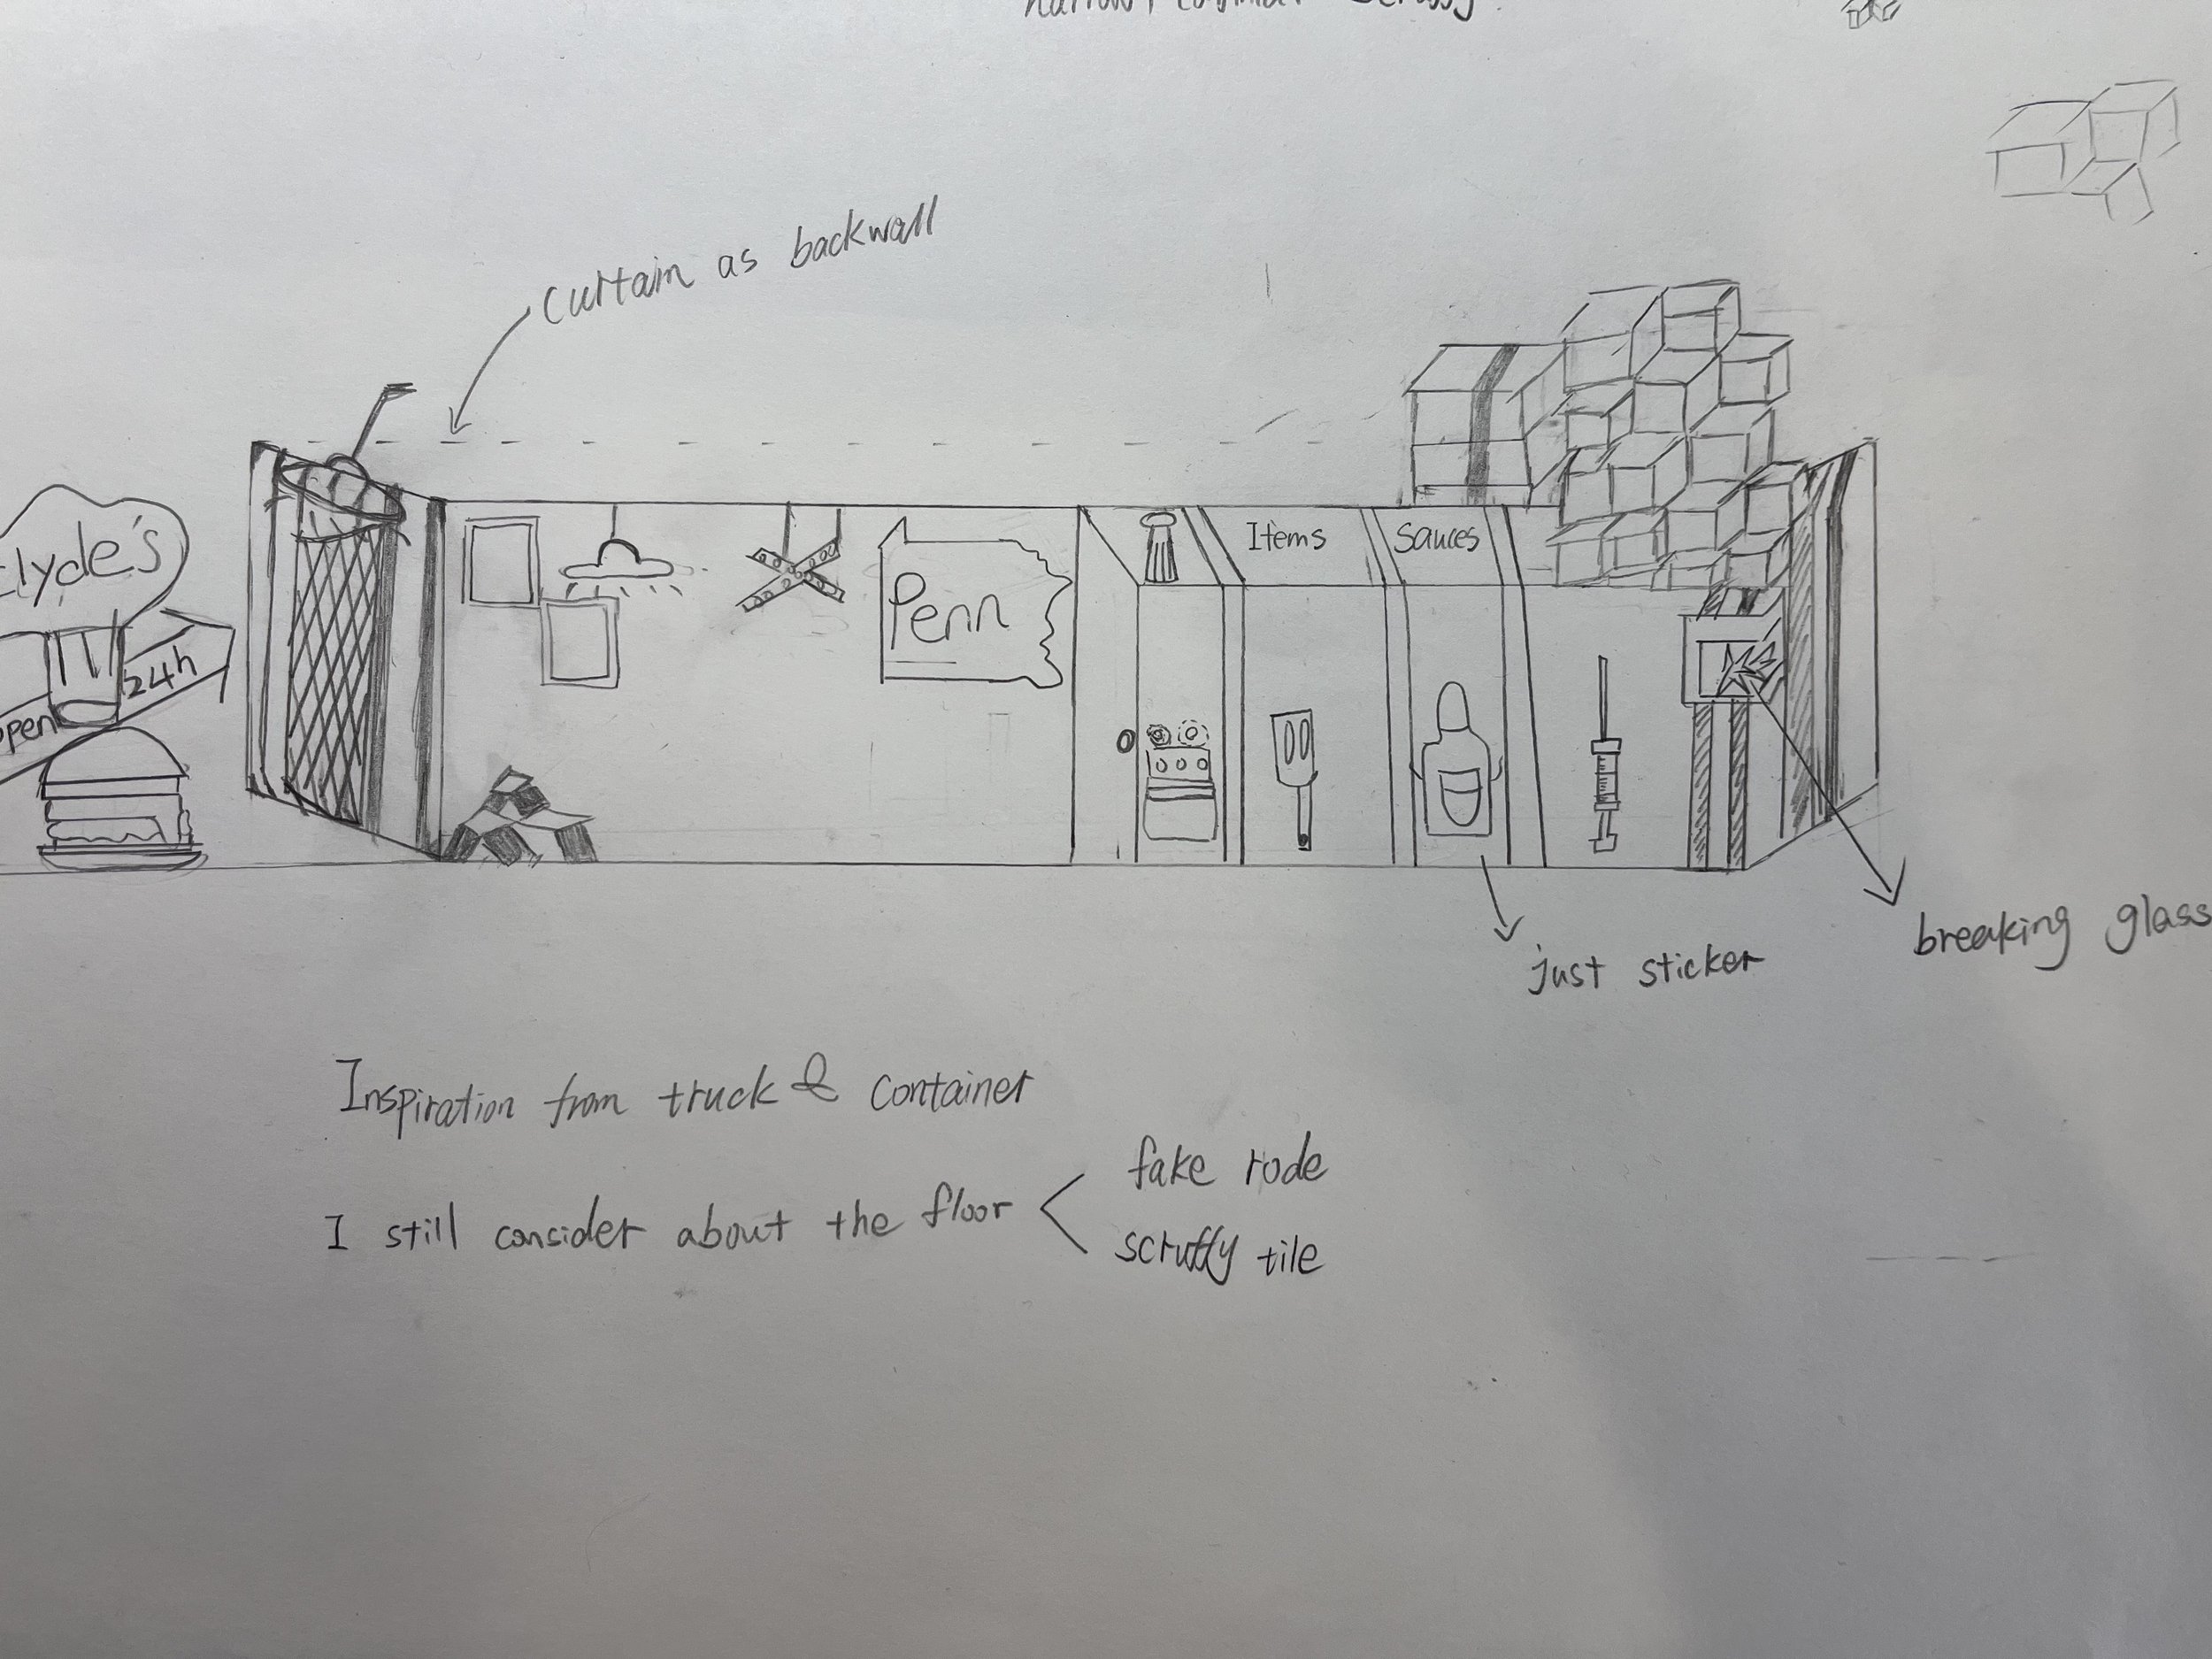 curtain as backwall
Clyde's
24h
open
Penn
Items
Sauces
just sticker
breaking glass
Inspiration from truck & container
I still consider about the floor
fake rode
scruffy tile